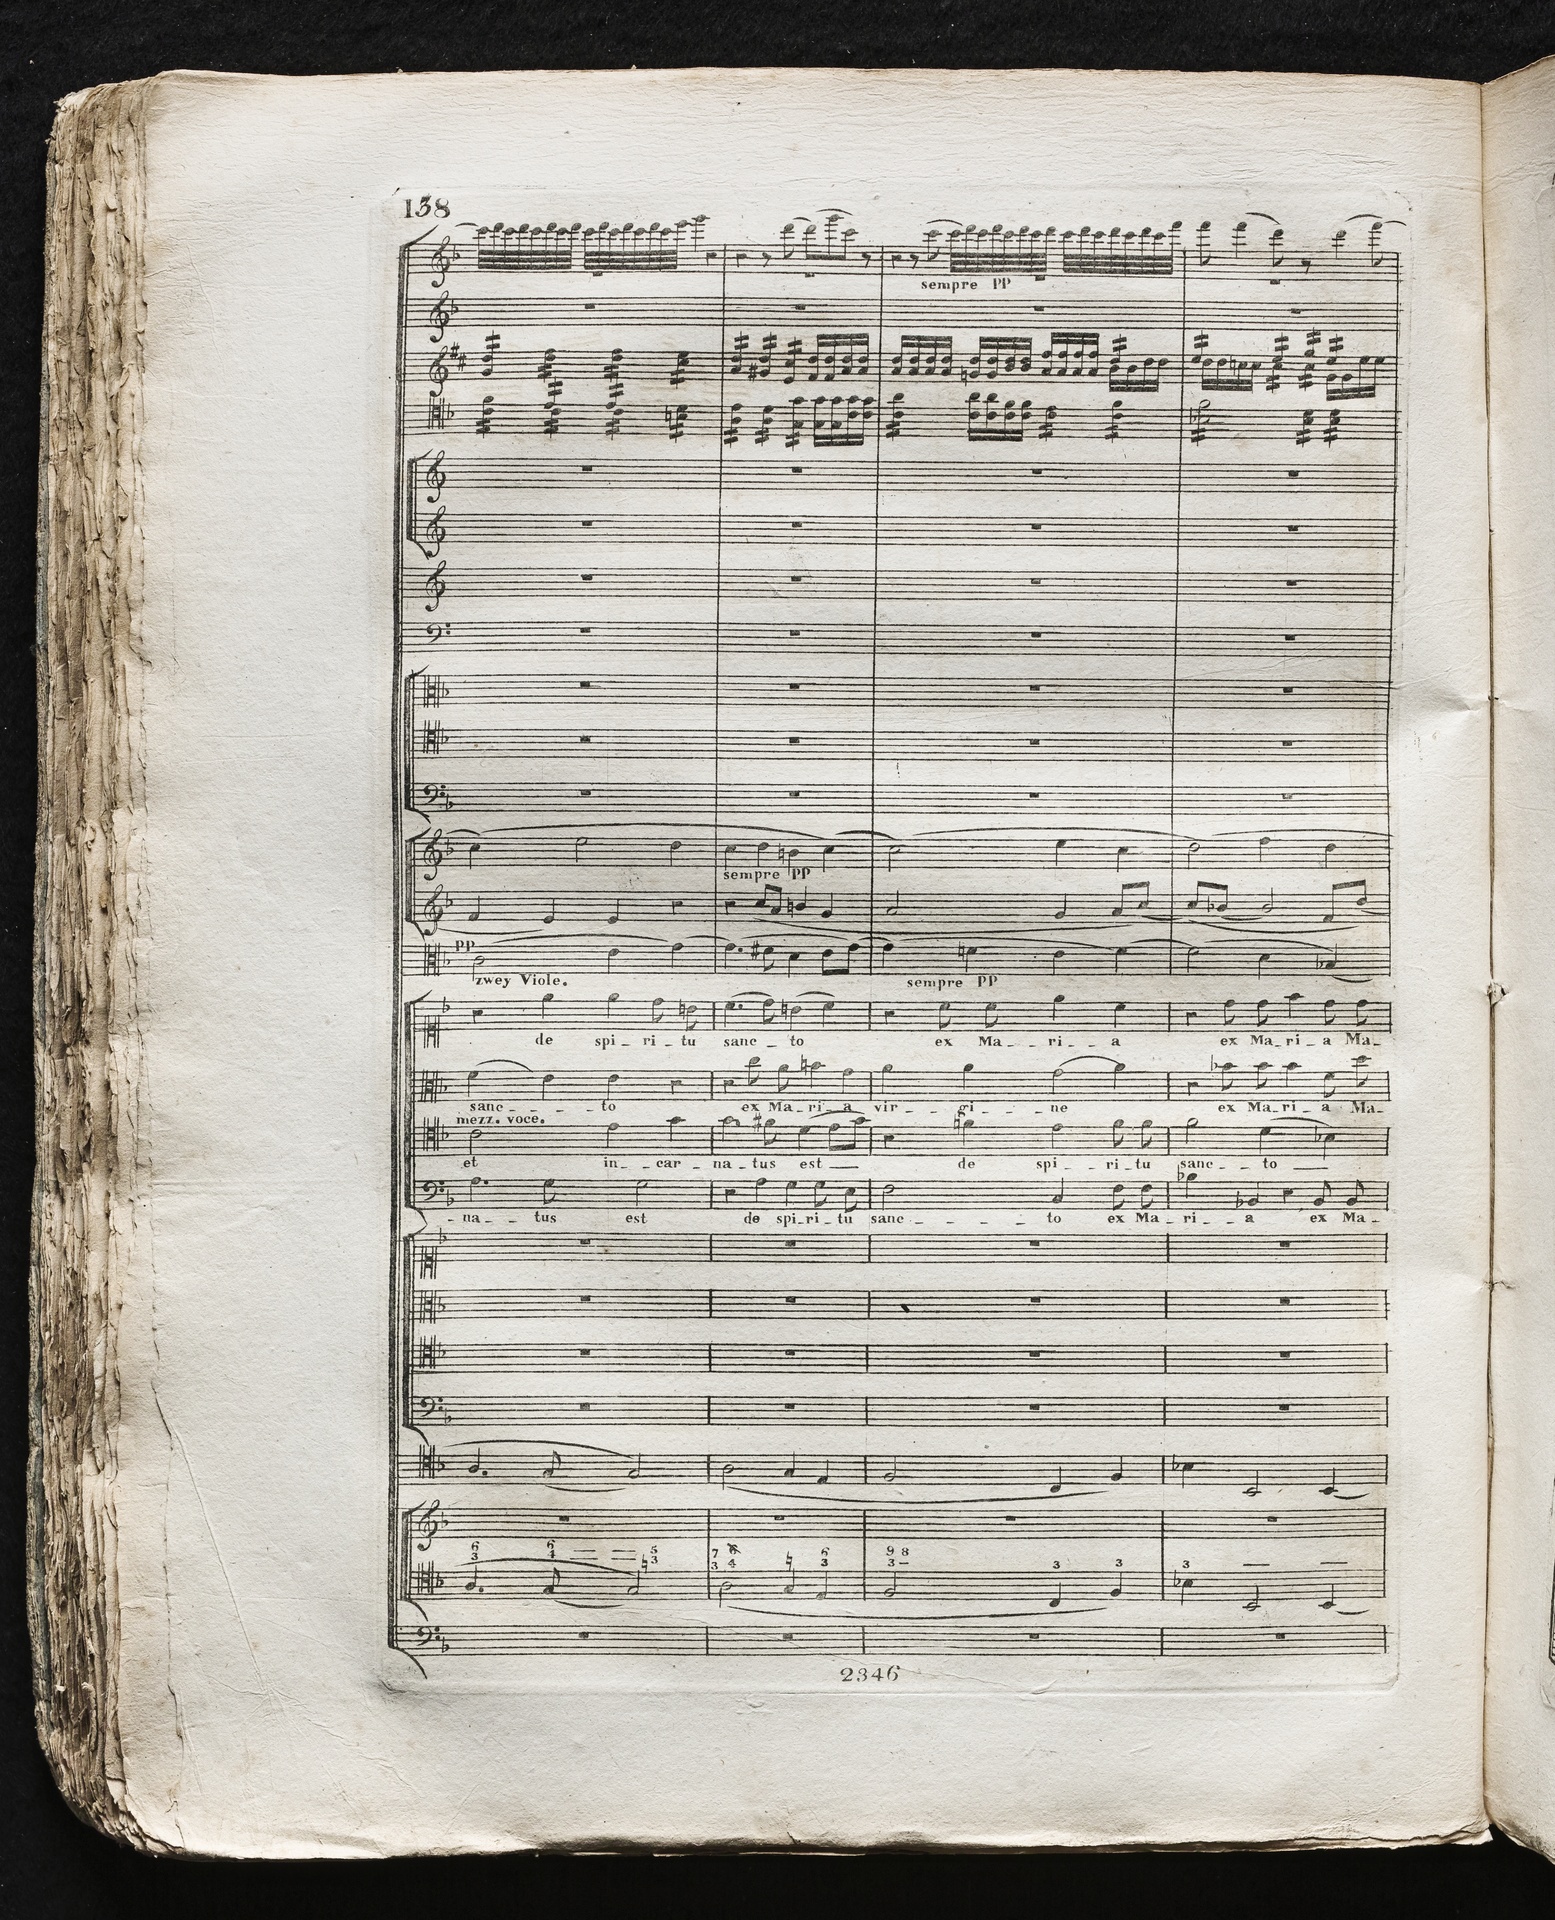 138
sempre PP
sempre PP
pp
zwey Viole.
sempre PP
de spi_ri_tu sanc_to ex Ma_ _ri_ _a ex Ma_ri_a Ma_
sanc_ _ _to ex Ma_ri_a vir_ _ _gi_ _ _ne ex Ma_ri_a Ma_
mezz. voce.
et in_ _car_na_tus est de spi_ _ri_tu sanc_ _to
_na_ _tus est de spi_ri_tu sanc_ _ _to ex Ma_ri_ _a ex Ma_
6 6 5 7 6 9 8
3 4 ♮3 3 4 ♮ 3 3– 3 3 3
2346